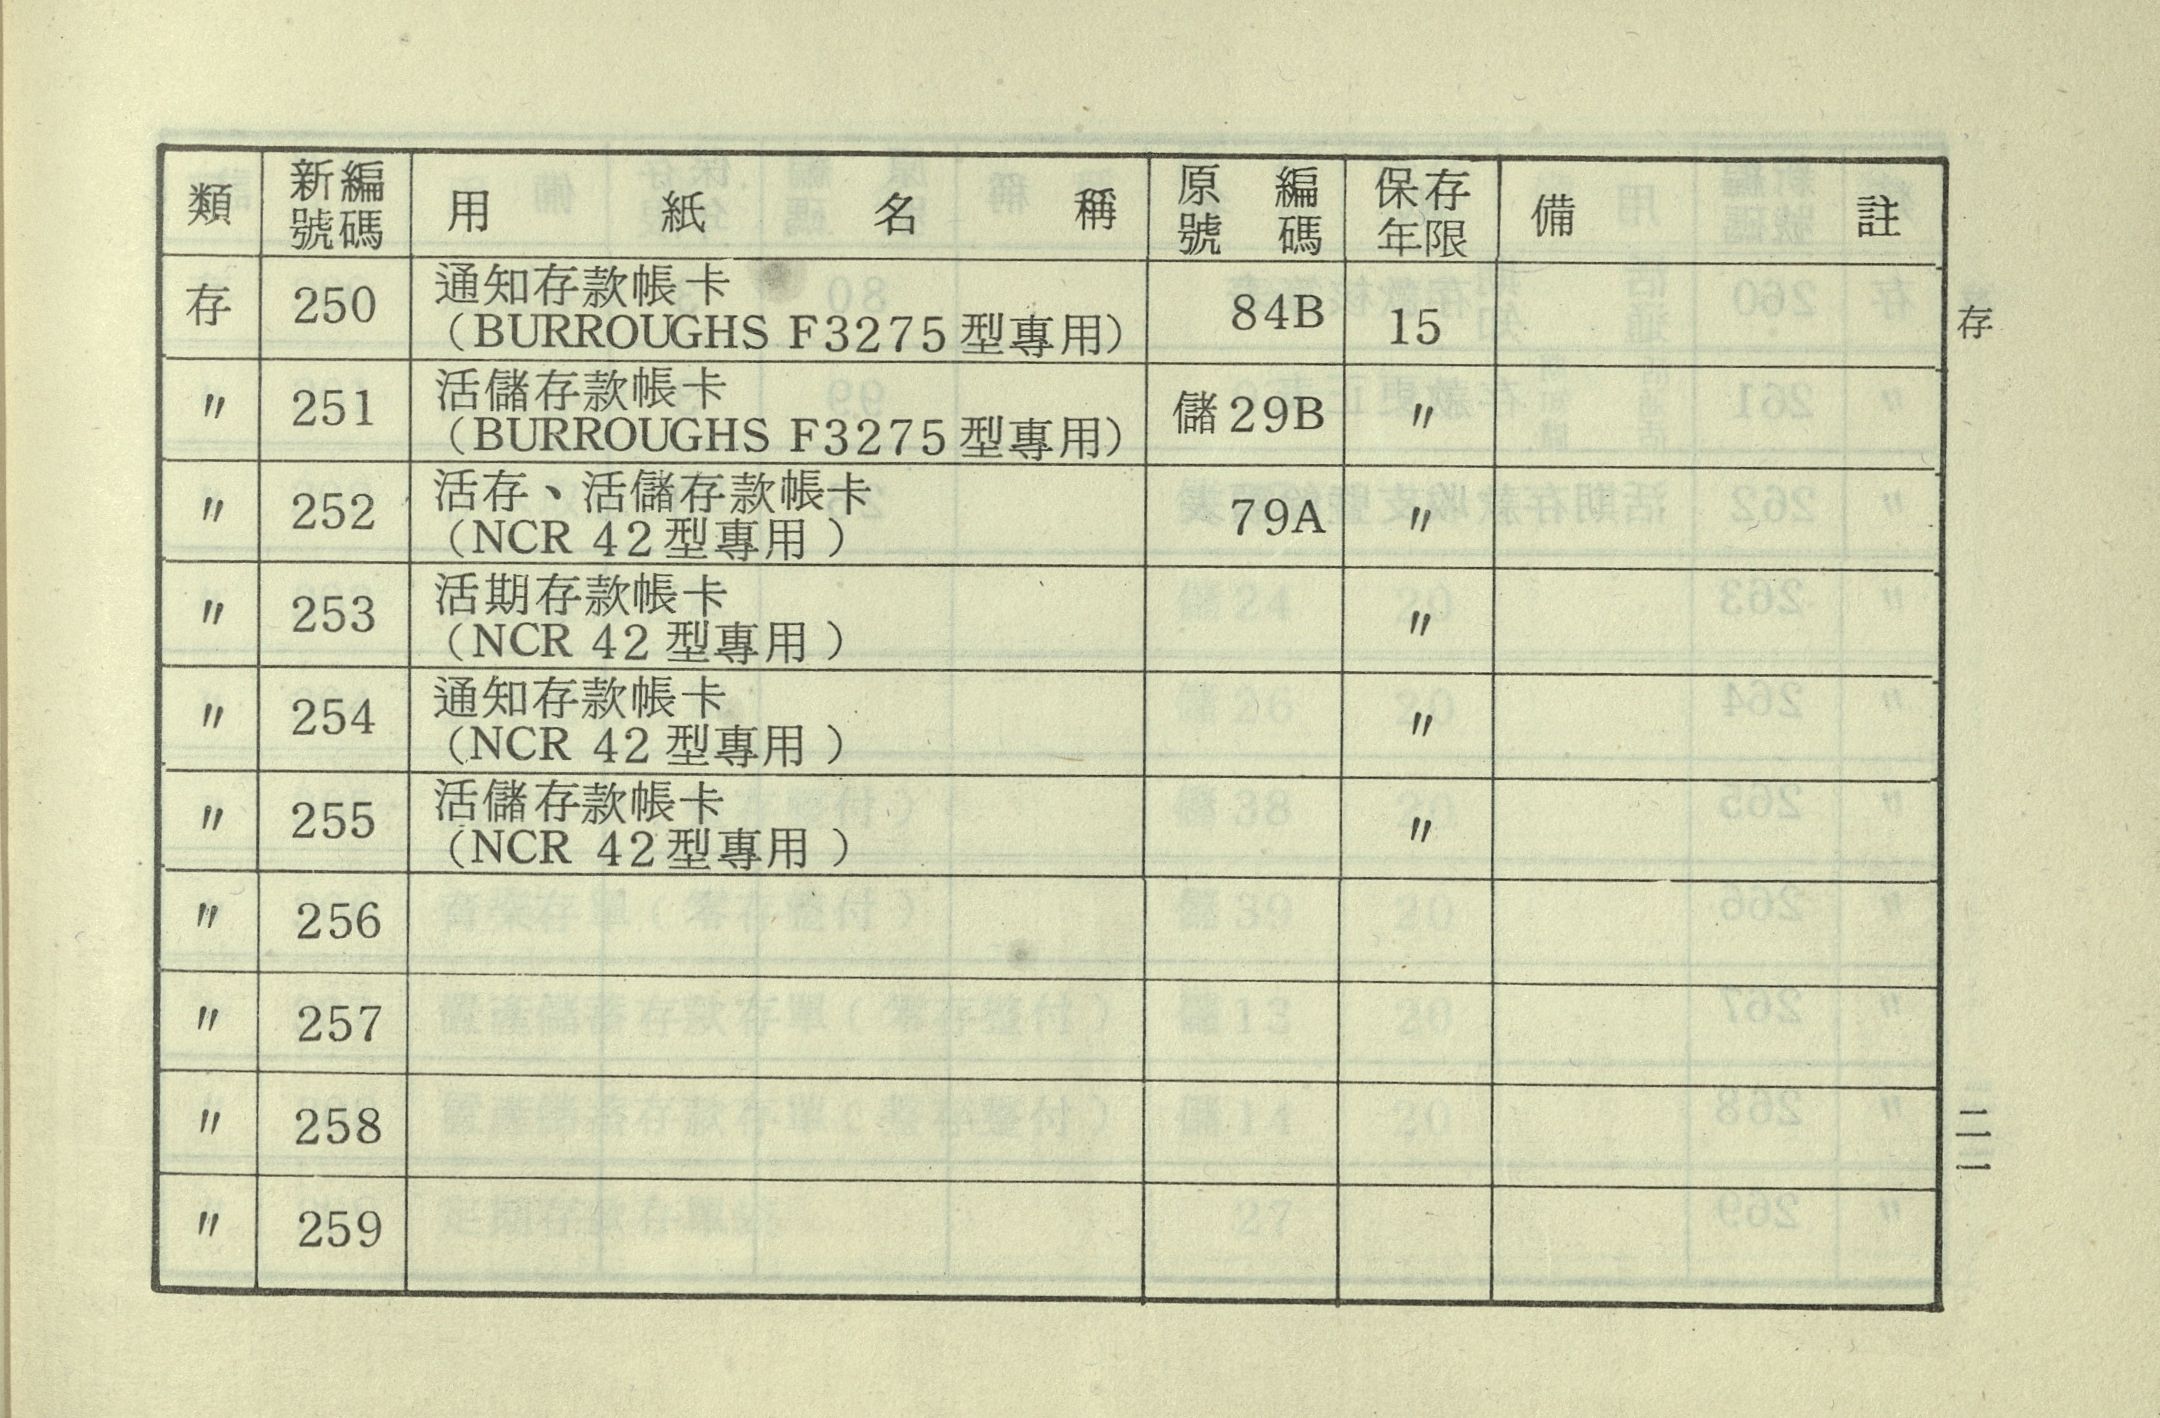 類 新編號碼 用紙名稱 原編號碼 保存年限 備註
存 250 通知存款帳卡
（BURROUGHS F3275型專用） 84B 15
〃 251 活儲存款帳卡
（BURROUGHS F3275型專用） 儲29B 〃
〃 252 活存、活儲存款帳卡
（NCR 42型專用） 79A 〃
〃 253 活期存款帳卡
（NCR 42型專用） 〃
〃 254 通知存款帳卡
（NCR 42型專用） 〃
〃 255 活儲存款帳卡
（NCR 42型專用） 〃
〃 256
〃 257
〃 258
〃 259
存